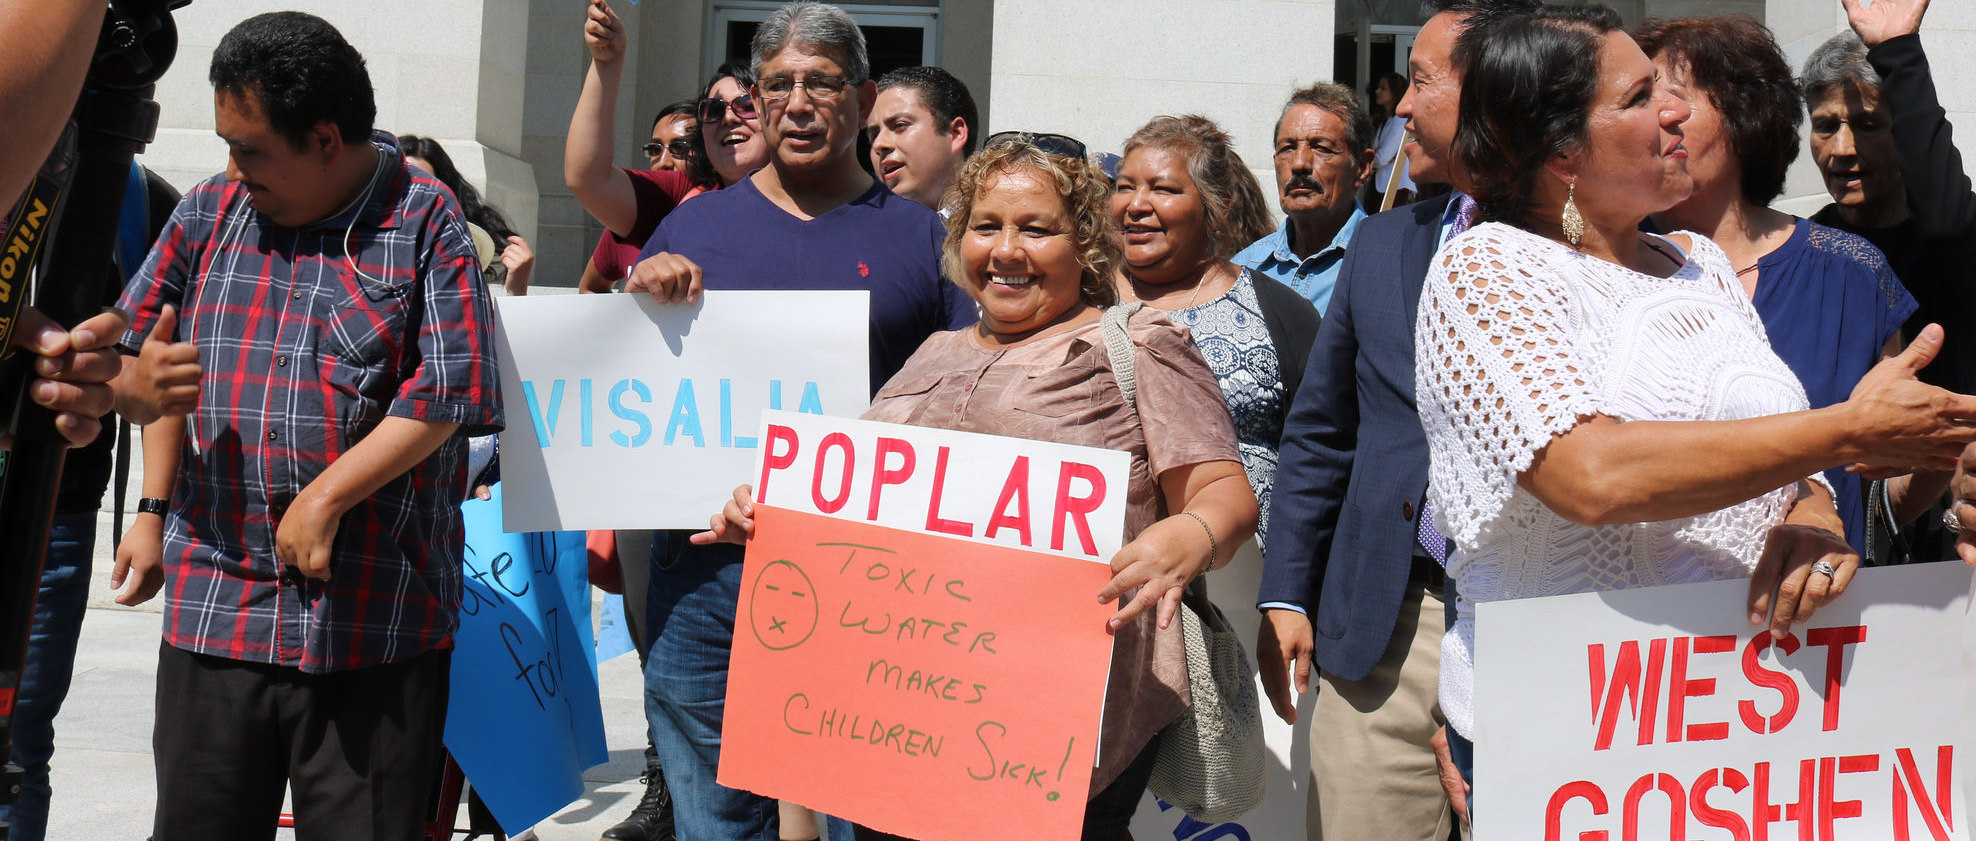 Nikon
VISALIA
POPLAR
TOXIC
WATER
MAKES
CHILDREN SICK!
for
WEST
GOSHEN